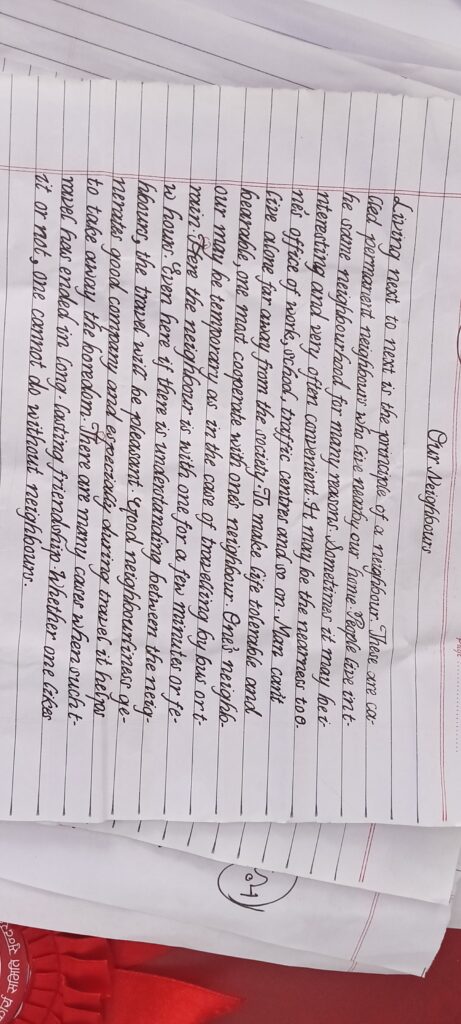 Our Neighbours
Living next to next is the principle of a neighbour. These are ca-
lled permanent neighbours who live nearby our home. People live in t-
he same neighbourhood for many reasons. Sometimes it may be i-
nteresting and very often convenient. It may be the nearness to o-
ne's office of work, school, traffic centres and so on. Man can't
live alone far away from the society. To make life tolerable and
bearable, one most cooperate with one's neighbour. One's neighb-
our may be temporary as in the case of travelling by bus or t-
rain. Here the neighbour is with one for a few minutes or fe-
w hours. Even here if there is understanding between the neig-
hbours, the travel will be pleasant. Good neighbourliness ge-
nerates good company and especially during travel it helps
to take away the boredom. There are many cases when such t-
ravel has ended in long-lasting friendship. Whether one likes
it or not, one cannot do without neighbours.